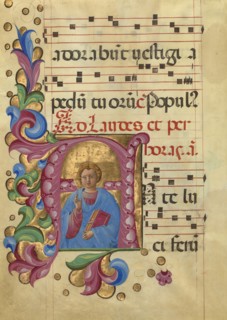 adorabūt vestigia
pedū tuorū Popul
Ad Laudes et per
horas. ā.
ANte lu
ciferū